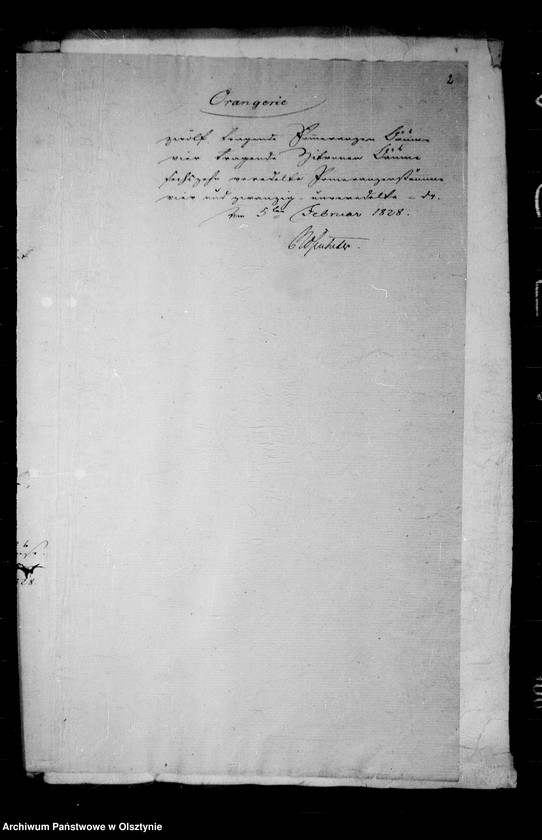 2
Orangerie
zwölf tragende Pomeranzen Bäume
vier tragende Zitronen Bäume
sechszehn veredelte Pomeranzenstämme
vier und zwanzig unveredelte - dt.
den 5ten Februar 1828.
28.
Archiwum Państwowe w Olsztynie